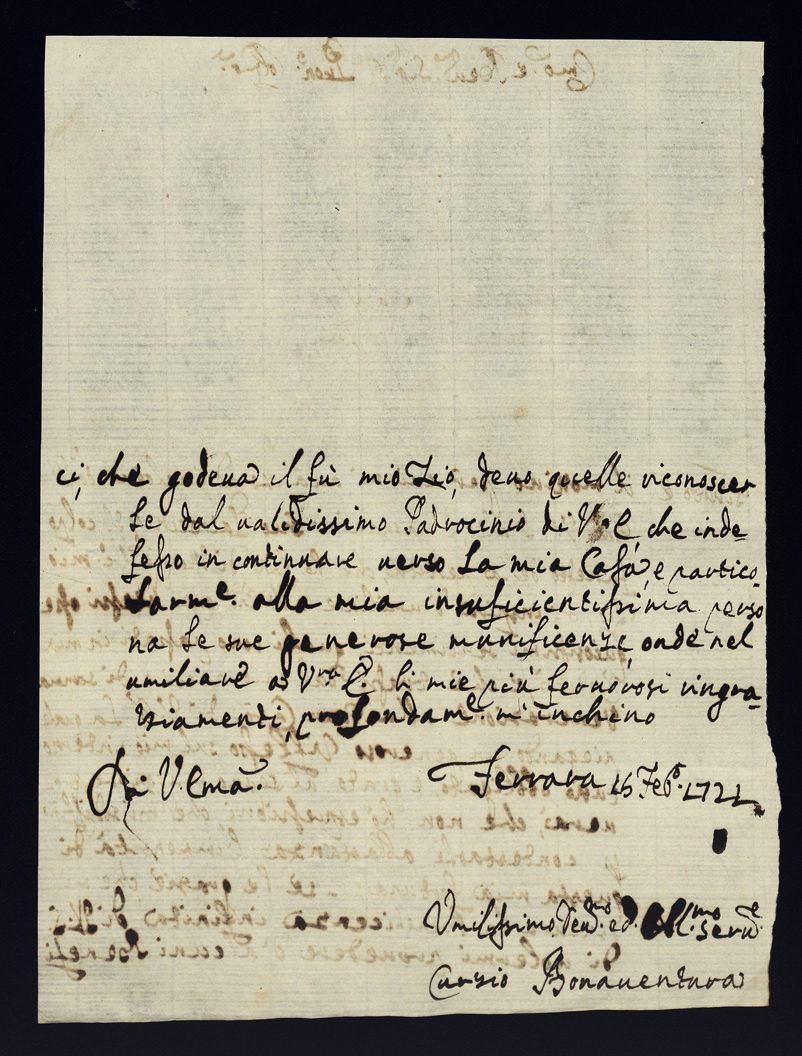 ci, che godeua il fù mio Zio, deuo quelle riconoscer
le dal ualidissimo Padrocinio di V. E. che inde=
fesso in continuare uerso la mia Casa, e partico=
larm.e alla mia insuficientissima perso
na le sue generose munificenze, onde nel
umiliare a V.ra E. li mie più feruorosi ringra=
ziamenti, profondam.e m'inchino
Di V. Ema.
Ferrara 16 Feb.o 1721
Vmilissimo Deu.mo ed Obl.mo Seru.e
Curzio Bonauentura